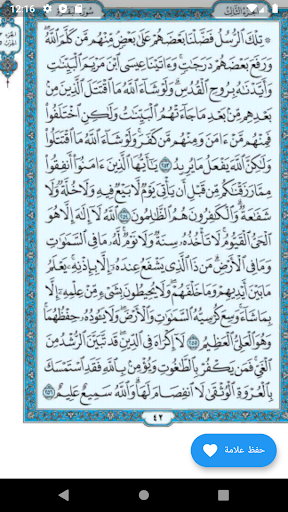 12:16
سورة البقرة
الجزء الثالث
۞ تِلْكَ ٱلرُّسُلُ فَضَّلْنَا بَعْضَهُمْ عَلَىٰ بَعْضٍ مِّنْهُم مَّن كَلَّمَ ٱللَّهُ
وَرَفَعَ بَعْضَهُمْ دَرَجَٰتٍ وَءَاتَيْنَا عِيسَى ٱبْنَ مَرْيَمَ ٱلْبَيِّنَٰتِ
وَأَيَّدْنَٰهُ بِرُوحِ ٱلْقُدُسِ وَلَوْ شَآءَ ٱللَّهُ مَا ٱقْتَتَلَ ٱلَّذِينَ مِنۢ
بَعْدِهِم مِّنۢ بَعْدِ مَا جَآءَتْهُمُ ٱلْبَيِّنَٰتُ وَلَٰكِنِ ٱخْتَلَفُوا۟
فَمِنْهُم مَّنْ ءَامَنَ وَمِنْهُم مَّن كَفَرَ وَلَوْ شَآءَ ٱللَّهُ مَا ٱقْتَتَلُوا۟
وَلَٰكِنَّ ٱللَّهَ يَفْعَلُ مَا يُرِيدُ ٢٥٣ يَٰٓأَيُّهَا ٱلَّذِينَ ءَامَنُوٓا۟ أَنفِقُوا۟
مِمَّا رَزَقْنَٰكُم مِّن قَبْلِ أَن يَأْتِىَ يَوْمٌ لَّا بَيْعٌ فِيهِ وَلَا خُلَّةٌ وَلَا
شَفَٰعَةٌ وَٱلْكَٰفِرُونَ هُمُ ٱلظَّٰلِمُونَ ٢٥٤ ٱللَّهُ لَآ إِلَٰهَ إِلَّا هُوَ
ٱلْحَىُّ ٱلْقَيُّومُ لَا تَأْخُذُهُۥ سِنَةٌ وَلَا نَوْمٌ لَّهُۥ مَا فِى ٱلسَّمَٰوَٰتِ
وَمَا فِى ٱلْأَرْضِ مَن ذَا ٱلَّذِى يَشْفَعُ عِندَهُۥٓ إِلَّا بِإِذْنِهِۦ يَعْلَمُ
مَا بَيْنَ أَيْدِيهِمْ وَمَا خَلْفَهُمْ وَلَا يُحِيطُونَ بِشَىْءٍ مِّنْ عِلْمِهِۦٓ إِلَّا
بِمَا شَآءَ وَسِعَ كُرْسِيُّهُ ٱلسَّمَٰوَٰتِ وَٱلْأَرْضَ وَلَا يَـُٔودُهُۥ حِفْظُهُمَا
وَهُوَ ٱلْعَلِىُّ ٱلْعَظِيمُ ٢٥٥ لَآ إِكْرَاهَ فِى ٱلدِّينِ قَد تَّبَيَّنَ ٱلرُّشْدُ مِنَ
ٱلْغَىِّ فَمَن يَكْفُرْ بِٱلطَّٰغُوتِ وَيُؤْمِنۢ بِٱللَّهِ فَقَدِ ٱسْتَمْسَكَ
بِٱلْعُرْوَةِ ٱلْوُثْقَىٰ لَا ٱنفِصَامَ لَهَا وَٱللَّهُ سَمِيعٌ عَلِيمٌ ٢٥٦
٤٢
حفظ علامة